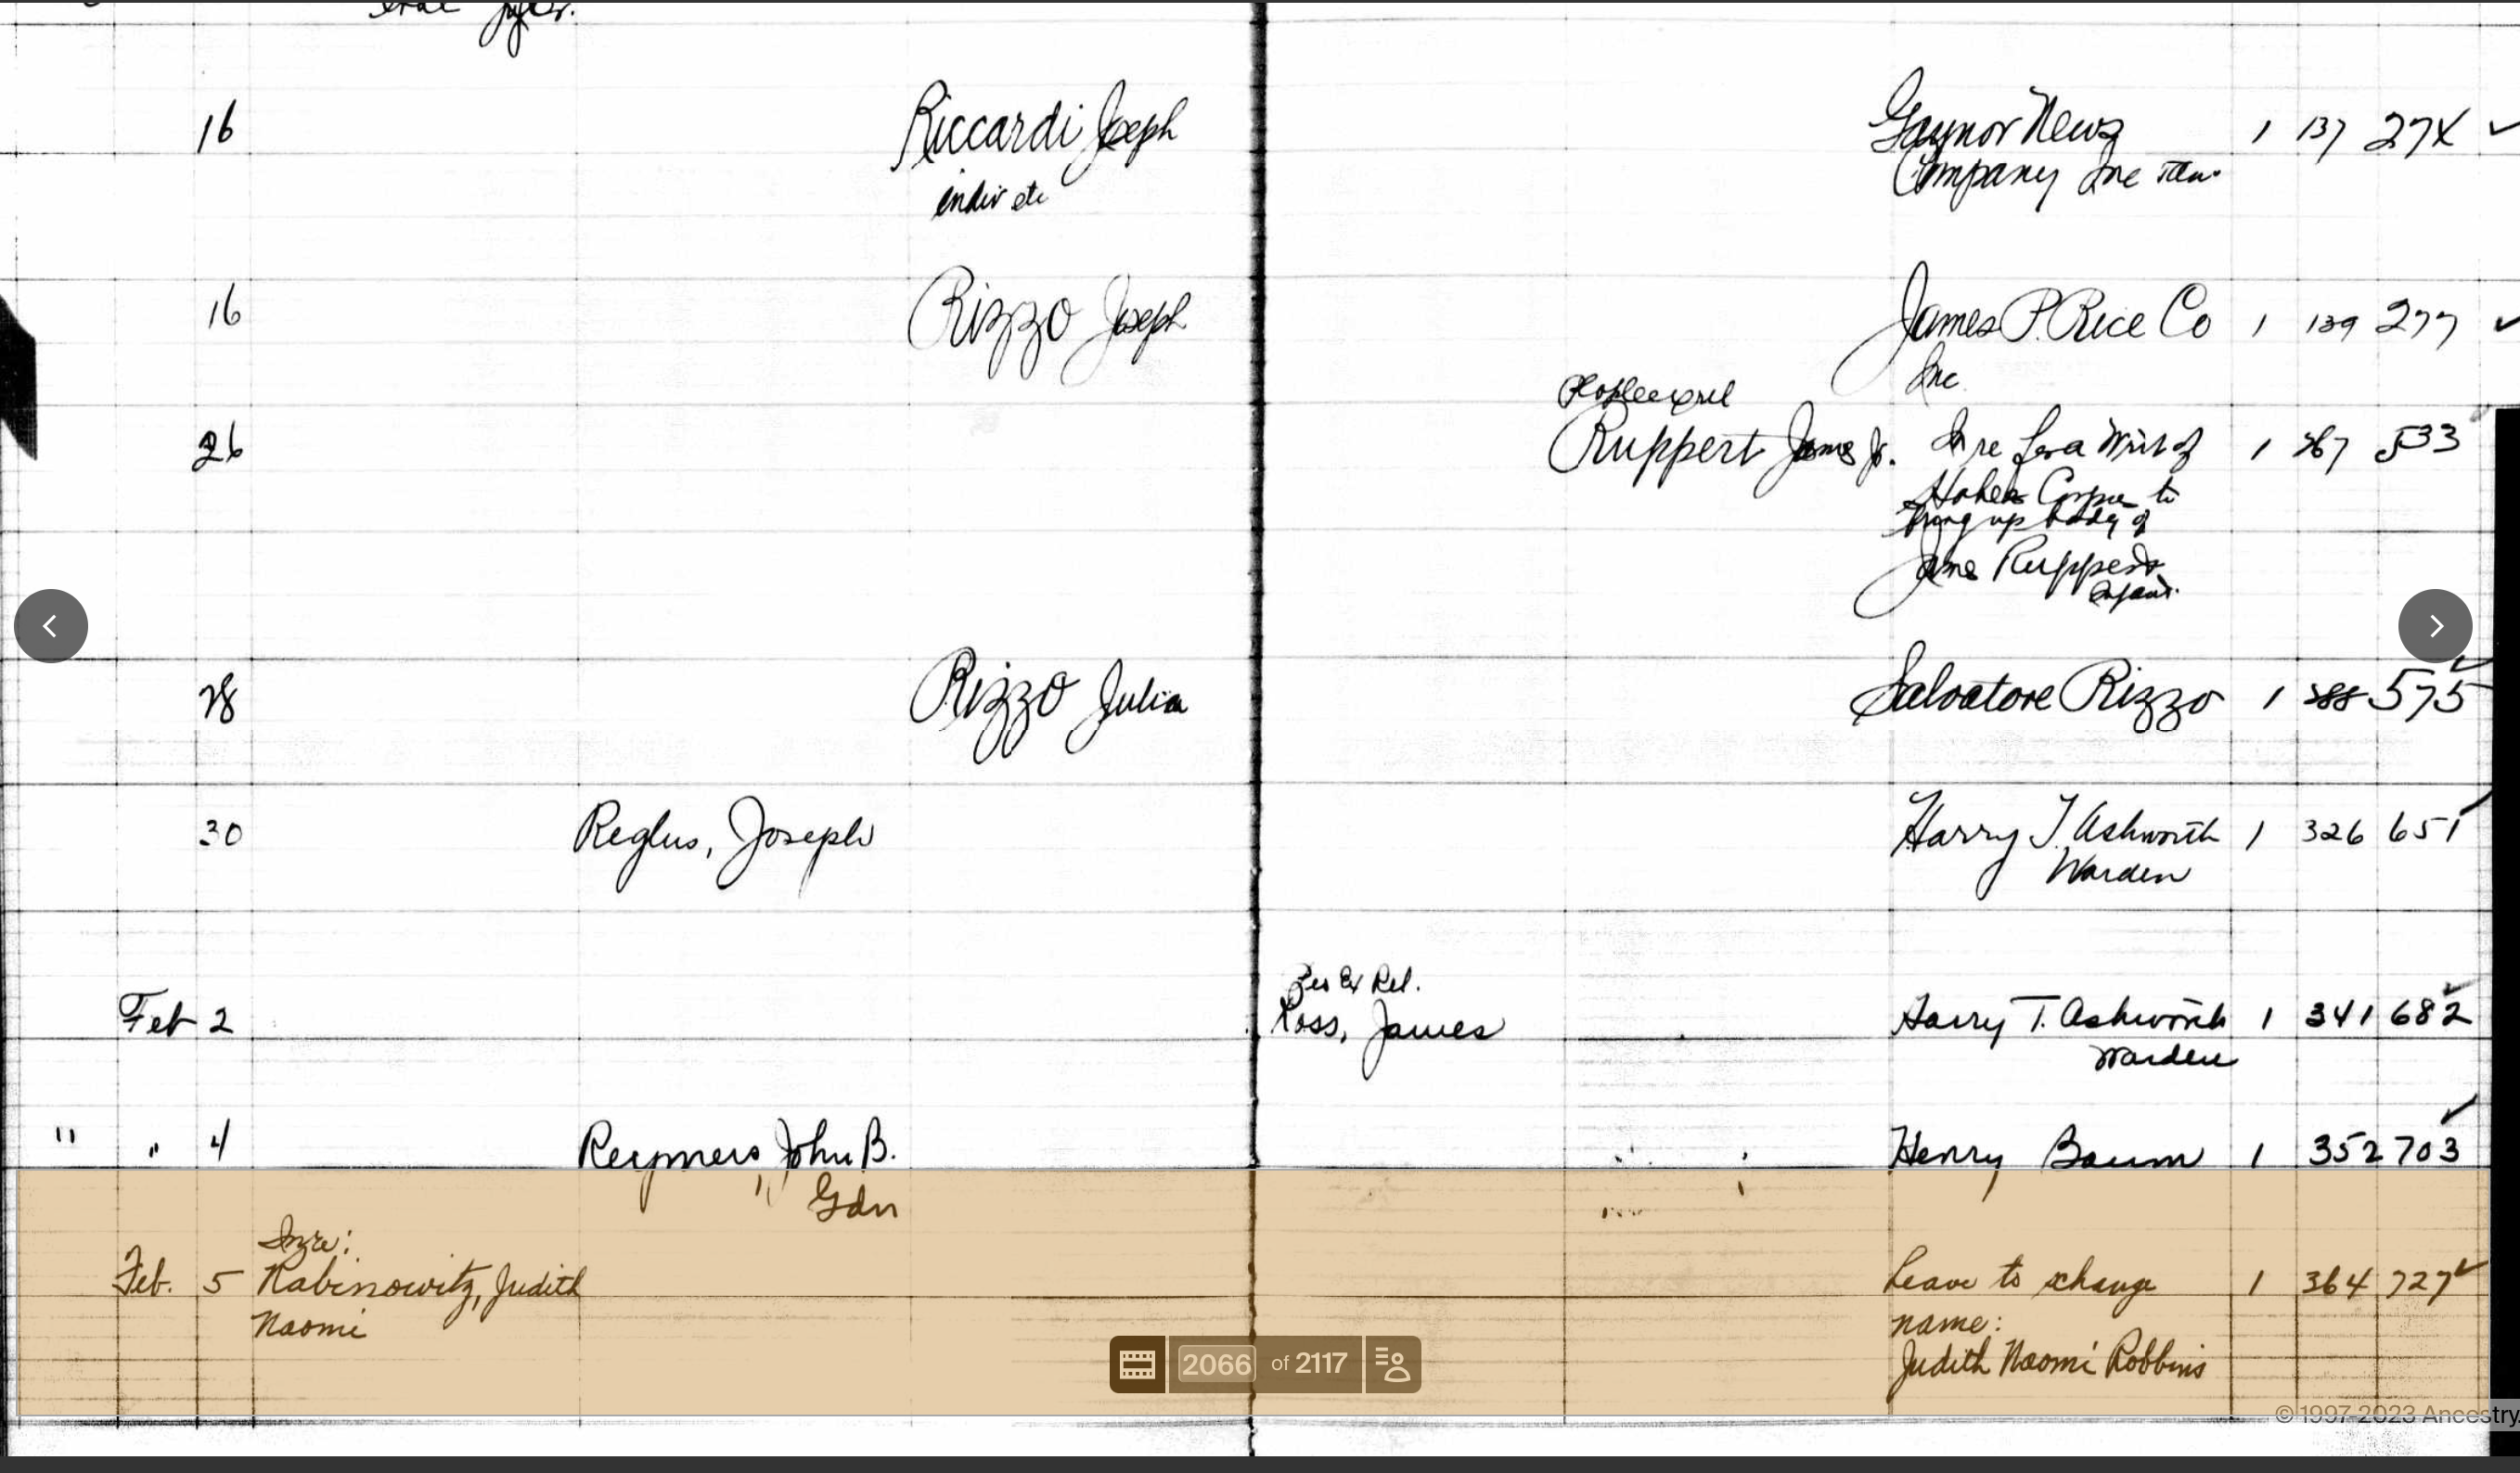 16 Riccardi Joseph Gaynor News 1 137 274 ✓
indiv etc Company Inc
16 Rizzo Joseph James P. Rice Co 1 139 277 ✓
Inc
26 Ruppert James Jr. In re for a Writ of 1 267 533
Habeas Corpus to
bring up body of
James Ruppert
Infant.
28 Rizzo Julia Salvatore Rizzo 1 288 575 ✓
30 Reglus, Joseph Harry T. Ashworth 1 326 651 ✓
Warden
Ex Rel.
Feb 2 Ross, James Harry T. Ashworth 1 341 682 ✓
Warden
" " 4 Reymers, John B. Henry Baum 1 352 703 ✓
Gdn
Inre:
Feb. 5 Rabinowitz, Judith Leave to change 1 364 727 ✓
Naomi name:
Judith Naomi Robbins
2066 of 2117
© 1997-2023 Ancestry